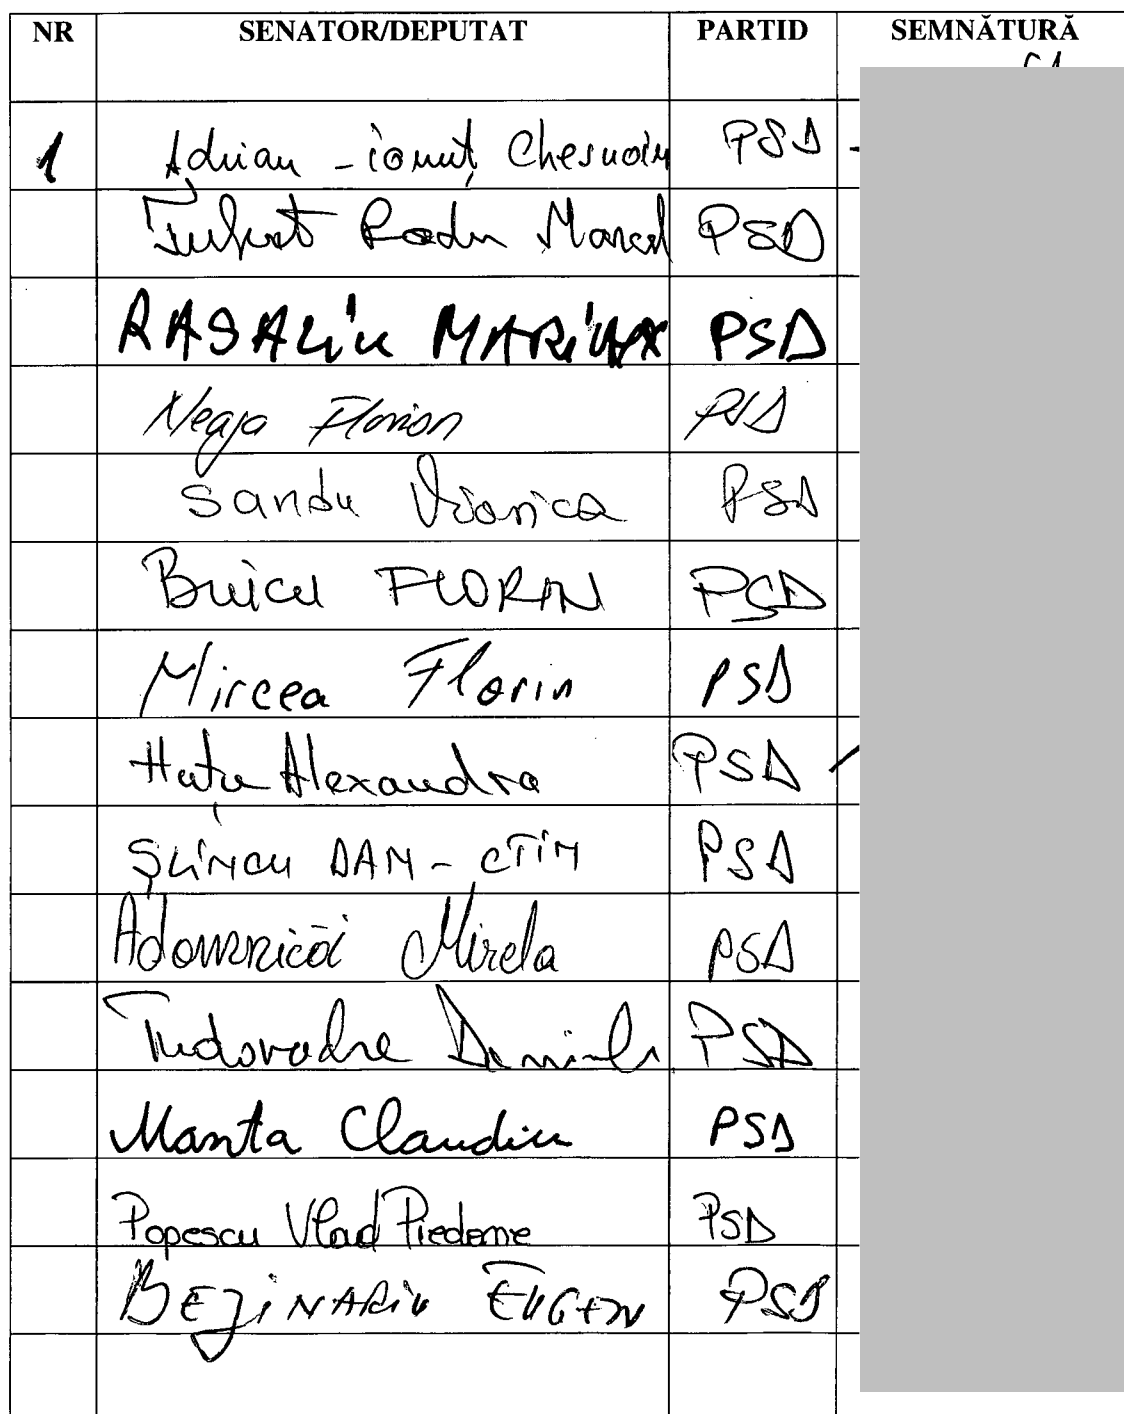 NR SENATOR/DEPUTAT PARTID SEMNĂTURĂ
1 Adrian-ionuț Chesnoiu PSD
Radu Marcel PSD
RASALiu MARiUX PSD
Neaga Florian PSD
Sandu Viorica PSD
Buicu FLORIN PSD
Mircea Florin PSD
Huțu Alexandra PSD
ȘLiNCU DAN-CTiN PSD
Adomnicăi Mirela PSD
Tudorache Daniela PSD
Manta Claudiu PSD
Popescu Vlad Piedone PSD
BEJiNARiU EUGEN PSD